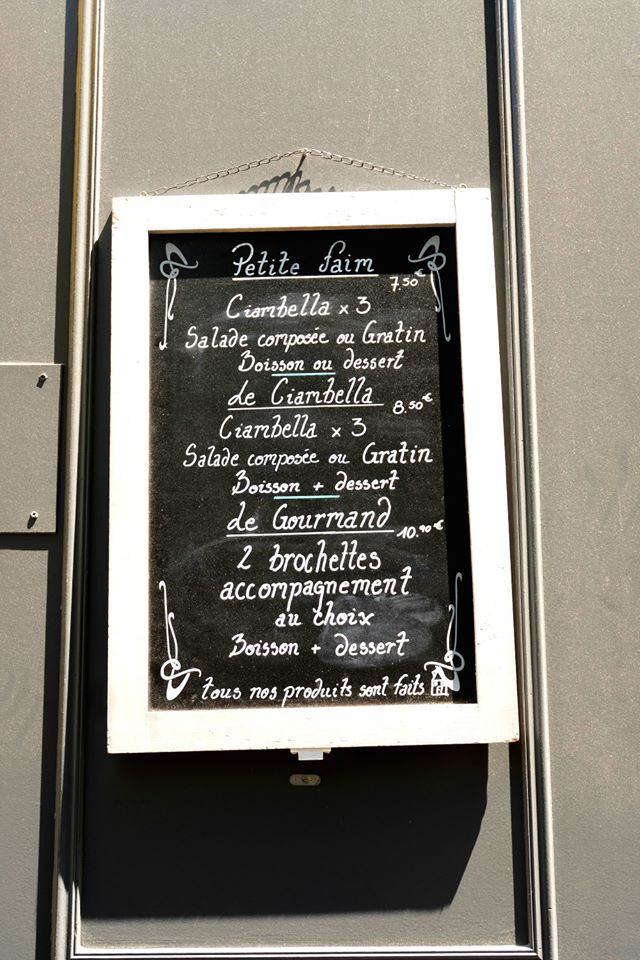 Petite faim
7.50€
Ciambella x 3
Salade composée ou Gratin
Boisson ou dessert
de Ciambella
8.50€
Ciambella x 3
Salade composée ou Gratin
Boisson + dessert
de Gourmand
10.90€
2 brochettes
accompagnement
au choix
Boisson + dessert
tous nos produits sont faits